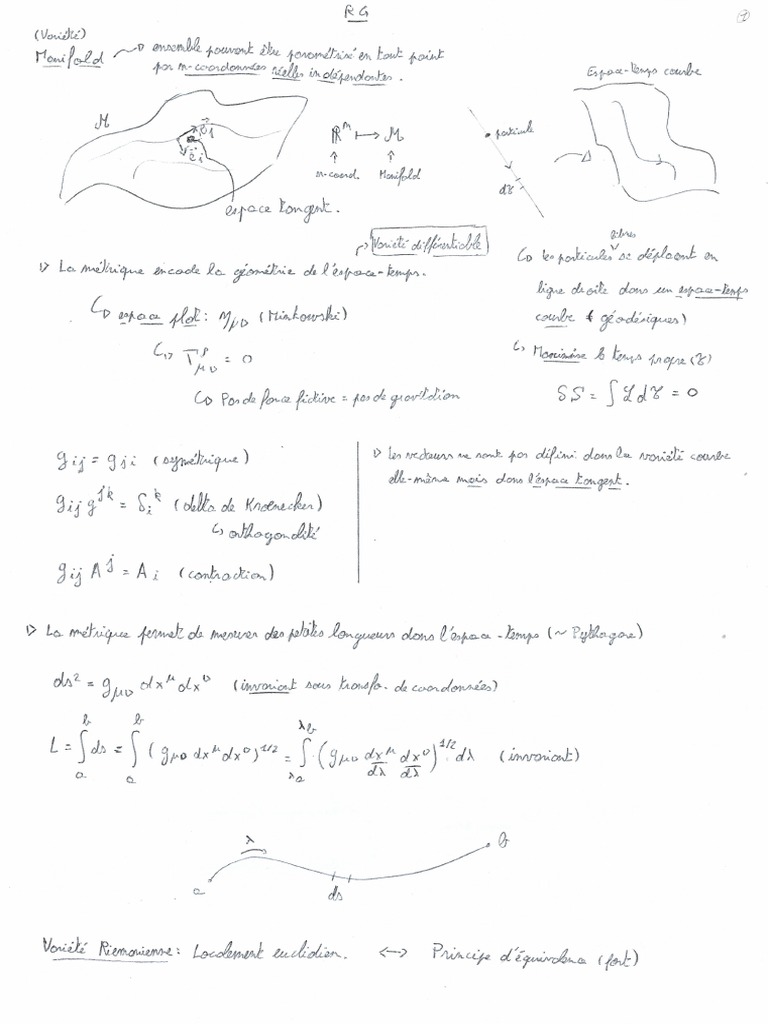 RG
①
(Variété)
Manifold → ensemble pouvant être paramétrisé en tout point
par n-coordonnées réelles indépendantes.
M
e⃗_j
e⃗_i
espace tangent.
ℝ^n ⟼ M
↑ ↑
n-coord. Manifold
particule
dτ
Espace-temps courbe
Variété différentiable
▷ La métrique encode la géométrie de l'espace-temps.
↳ espace plat : η_μν (Minkowski)
↳ Γ^ρ_μν = 0
↳ Pas de force fictive = pas de gravitation
↳ les particules libres se déplacent en
ligne droite dans un espace-temps
courbe (géodésiques)
↳ Maximise le temps propre (τ)
δS = ∫ ℒ dτ = 0
g_ij = g_ji (symétrique)
g_ij g^jk = δ_i^k (delta de Kroenecker)
↳ orthogonalité
g_ij A^j = A_i (contraction)
▷ Les vecteurs ne sont pas défini dans la variété courbe
elle-même mais dans l'espace tangent.
▷ La métrique permet de mesurer des petites longueurs dans l'espace-temps (~ Pythagore)
ds² = g_μν dx^μ dx^ν (invariant sous transfo. de coordonnées)
L = ∫_a^b ds = ∫_a^b (g_μν dx^μ dx^ν)^1/2 = ∫_λa^λb (g_μν dx^μ/dλ dx^ν/dλ)^1/2 dλ (invariant)
λ
a
ds
b
Variété Riemanienne : Localement euclidien. ↔ Principe d'équivalence (fort)